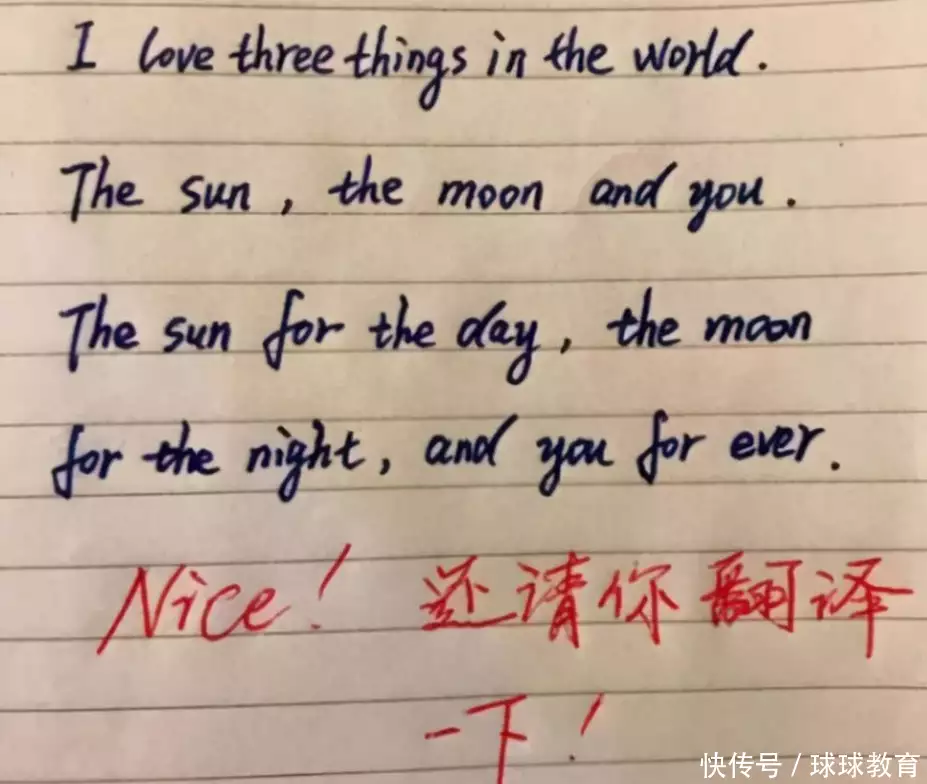 I love three things in the world.
The sun, the moon and you.
The sun for the day, the moon
for the night, and you for ever.
Nice! 还请你翻译
一下!
快传号 / 球球教育